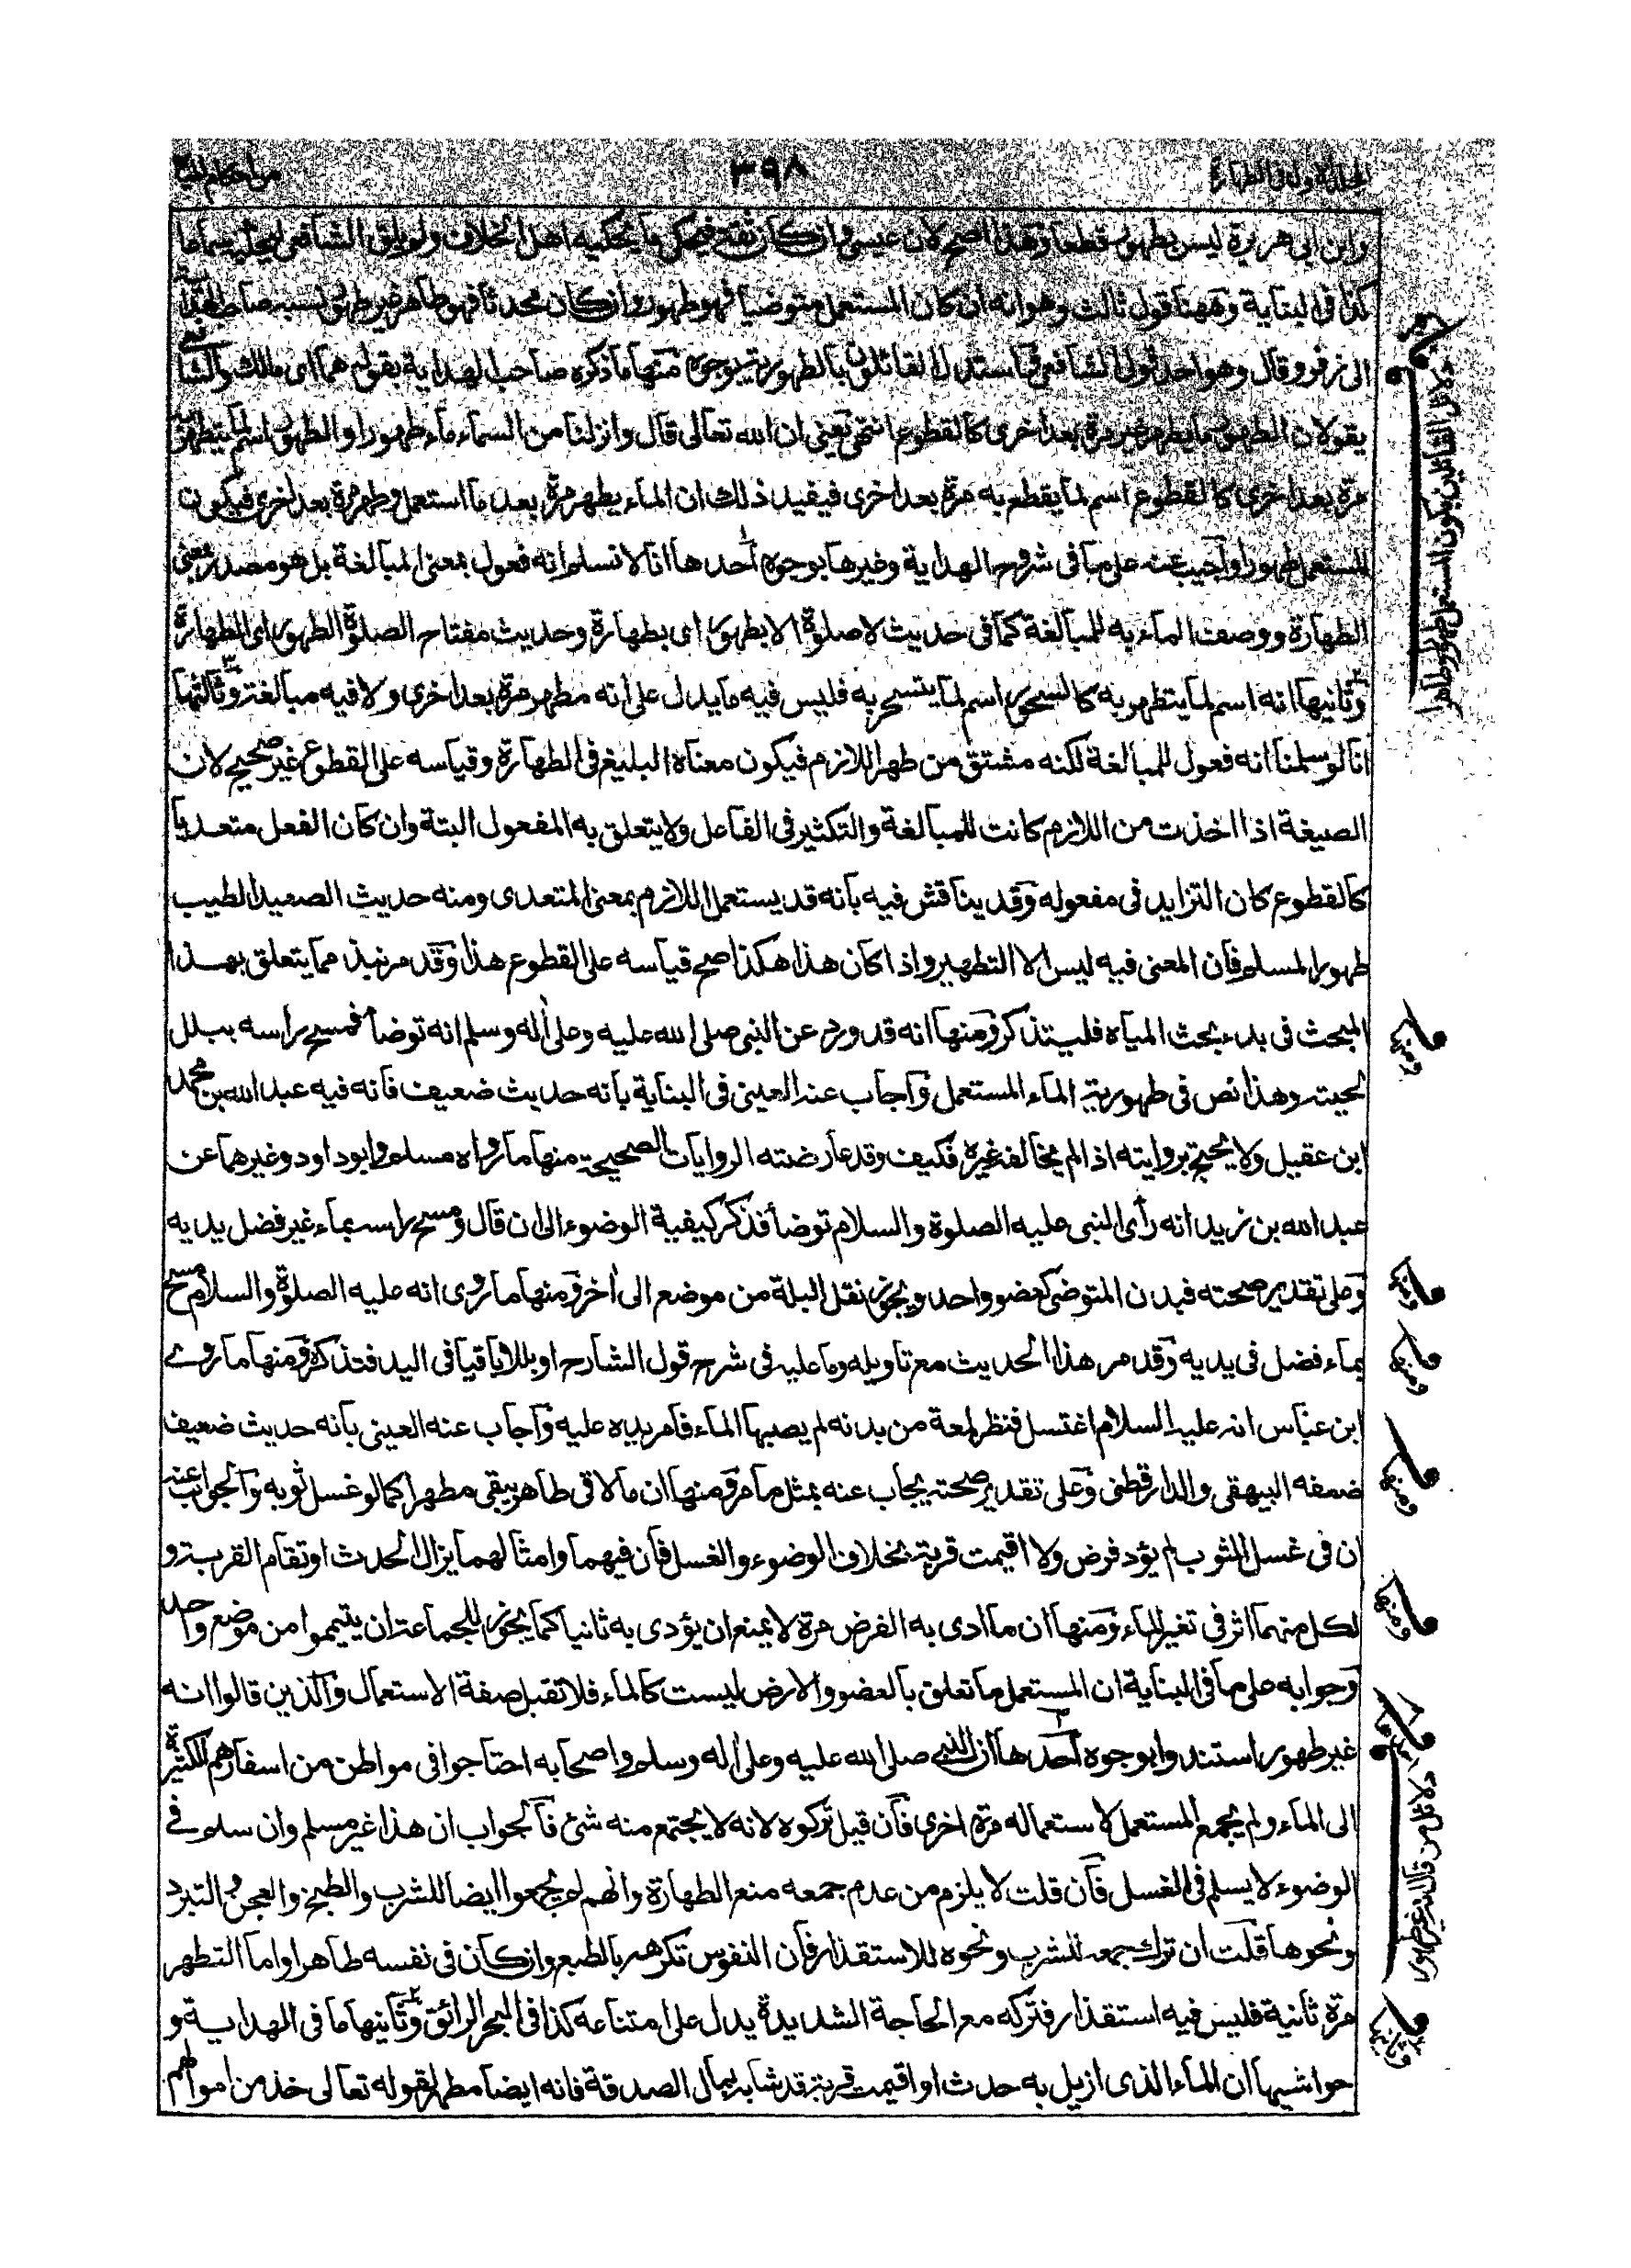 المجلد الاول فى الطهارة ٣٩٨ من احكام المياه
وابن ابى هريرة ليس بطهور قطعا وهذا اصح لان عيسى وان كان ثقة فيحكى ما يحكيه اهل الخلاف ولم يلق الشافعى ليحكيه سماعا
كذا فى البناية وههنا قول ثالث وهو انه ان كان المستعمل متوضيا فهو طهور وان كان محدثا فهو طاهر غير طهور نسبه صاحب الهداية
الى زفر وقال وهو احد قولى الشافعى واستدل القائلون بالطهورية بوجوه منها ما ذكره صاحب الهداية بقوله هما اى مالك والشافعى
يقولان الطهور ما يطهر غيره مرة بعد اخرى كالقطوع انتهى يعنى ان الله تعالى قال وانزلنا من السماء ماء طهورا والطهور اسم لما يتطهر به
مرة بعد اخرى كالقطوع اسم لما يقطع به مرة بعد اخرى فيفيد ذلك ان الماء يطهر مرة بعد ما استعمل وطهر مرة بعد اخرى فيكون
المستعمل طهورا واجيب عنه على ما فى شروح الهداية وغيرها بوجوه احدها انا لا نسلم انه فعول بمعنى المبالغة بل هو مصدر بمعنى
الطهارة ووصف الماء به للمبالغة كما فى حديث لا صلوة الا بطهور اى بطهارة وحديث مفتاح الصلوة الطهور اى الطهارة
وثانيها انه اسم لما يتطهر به كالسحور اسم لما يتسحر به فليس فيه ما يدل على انه مطهر مرة بعد اخرى ولا فيه مبالغة وثالثها
انا لو سلمنا انه فعول للمبالغة لكنه مشتق من طهر اللازم فيكون معناه البليغ فى الطهارة وقياسه على القطوع غير صحيح لان
الصيغة اذا اخذت من اللازم كانت للمبالغة والتكثير فى الفاعل ولا يتعلق به المفعول البتة وان كان الفعل متعديا
كالقطوع كان التزايد فى مفعوله وقد يناقش فيه بانه قد يستعمل اللازم بمعنى المتعدى ومنه حديث الصعيد الطيب
طهور المسلم فان المعنى فيه ليس الا التطهير واذا كان هذا هكذا صح قياسه على القطوع هذا وقد مر نبذ مما يتعلق بهذا
المبحث فى بدء بحث المياه فليتذكر ومنها انه قد ورد عن النبى صلى الله عليه وعلى اله وسلم انه توضأ فمسح راسه ببلل
لحيته وهذا نص فى طهورية الماء المستعمل واجاب عنه العينى فى البناية بانه حديث ضعيف فانه فيه عبد الله بن محمد
ابن عقيل ولا يحتج بروايته اذا لم يخالفه غيره فكيف وقد عارضته الروايات الصحيحة منها ما رواه مسلم وابو داود وغيرهما عن
عبد الله بن زيد انه رأى النبى عليه الصلوة والسلام توضأ فذكر كيفية الوضوء الى ان قال ومسح راسه بماء غير فضل يديه
وعلى تقدير صحته فبدن المتوضى كعضو واحد ويجوز نقل البلة من موضع الى اخر ومنها ما روى انه عليه الصلوة والسلام مسح
بماء فضل فى يديه وقد مر هذا الحديث مع تاويله وما عليه فى شرح قول الشارح او بللا باقيا فى اليد فتذكره ومنها ما روى
ابن عباس انه عليه السلام اغتسل فنظر لمعة من بدنه لم يصبها الماء فامر بيده عليه واجاب عنه العينى بانه حديث ضعيف
ضعفه البيهقى والدارقطنى وعلى تقدير صحته يجاب عنه بمثل ما مر ومنها ان ما لاقى طاهر يبقى مطهرا كما لو غسل ثوبه والجواب عنه
ان فى غسل الثوب لم يؤد فرض ولا اقيمت قربة بخلاف الوضوء والغسل فان فيهما وامثالهما يزال الحدث او تقام القربة و
لكل منهما اثر فى تغير الماء ومنها ان ما ادى به الفرض مرة لا يمنع ان يؤدى به ثانيا كما يجوز للجماعة ان يتيمموا من موضع واحد
وجوابه على ما فى البناية ان المستعمل ما تعلق بالعضو والارض ليست كالماء فلا تقبل صفة الاستعمال والذين قالوا انه
غير طهور استندوا بوجوه احدها ان النبى صلى الله عليه وعلى اله وسلم واصحابه احتاجوا فى مواطن من اسفارهم الكثيرة
الى الماء ولم يجمع المستعمل لاستعماله مرة اخرى فان قيل تركوه لانه لا يجتمع منه شئ فالجواب ان هذا غير مسلم وان سلم فى
الوضوء لا يسلم فى الغسل فان قلت لا يلزم من عدم جمعه منع الطهارة وانهم لم يجمعوا ايضا للشرب والطبخ والعجن والتبرد
ونحوها قلت ان ترك جمعه للشرب ونحوه للاستقذار فان النفوس تكرهه بالطبع وان كان فى نفسه طاهرا واما التطهر
مرة ثانية فليس فيه استقذار فتركه مع الحاجة الشديدة يدل على امتناعه كذا فى البحر الرائق وثانيها ما فى الهداية و
حواشيها ان الماء الذى ازيل به حدث او اقيمت قربة قد شابه بمال الصدقة فانه ايضا مطهر لقوله تعالى خذ من اموالهم
دلائل القائلين بكون المستعمل طهورا طاهرا
ومنها
ومنها
ومنها
ومنها
ومنها
دلائل من قال انه غير طهور
وثانيها